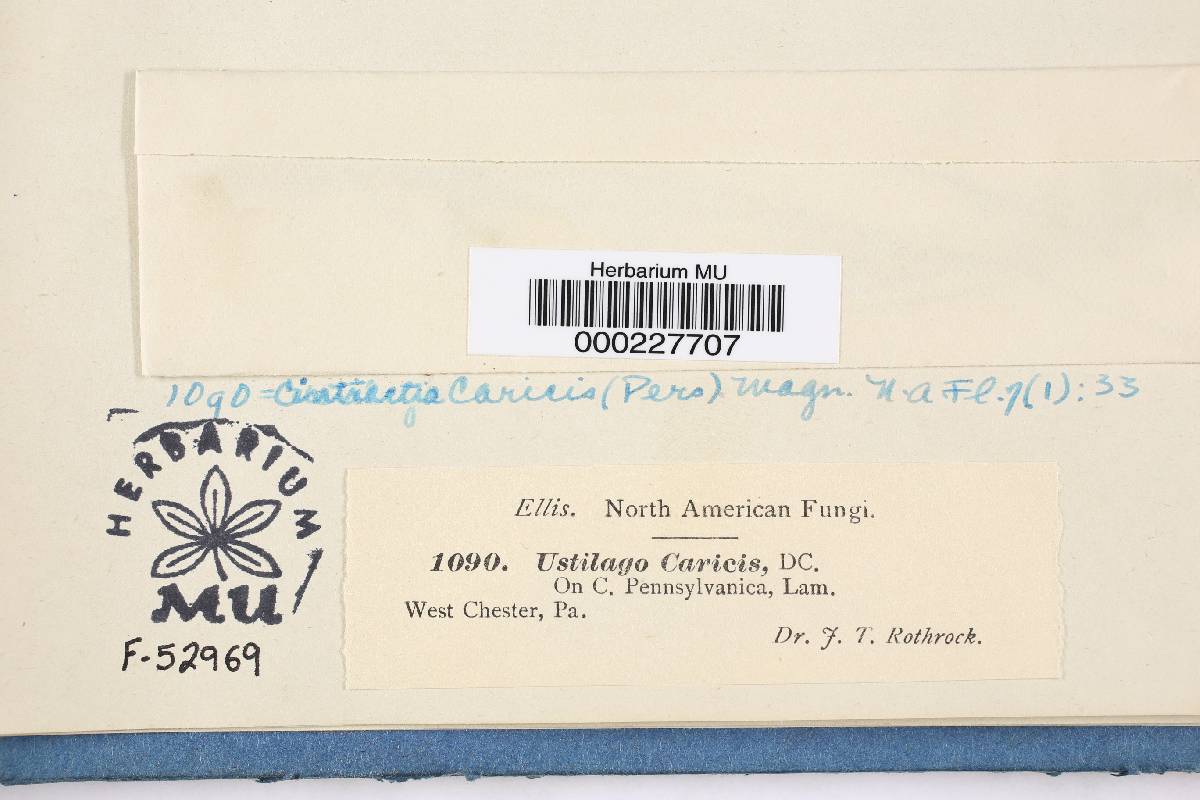 Herbarium MU
000227707
1090 = Cintractia Caricis (Pers) Magn. N. A Fl. 7(1): 33
HERBARIUM
MU
F-52969
Ellis. North American Fungi.
1090. Ustilago Caricis, DC.
On C. Pennsylvanica, Lam.
West Chester, Pa.
Dr. J. T. Rothrock.